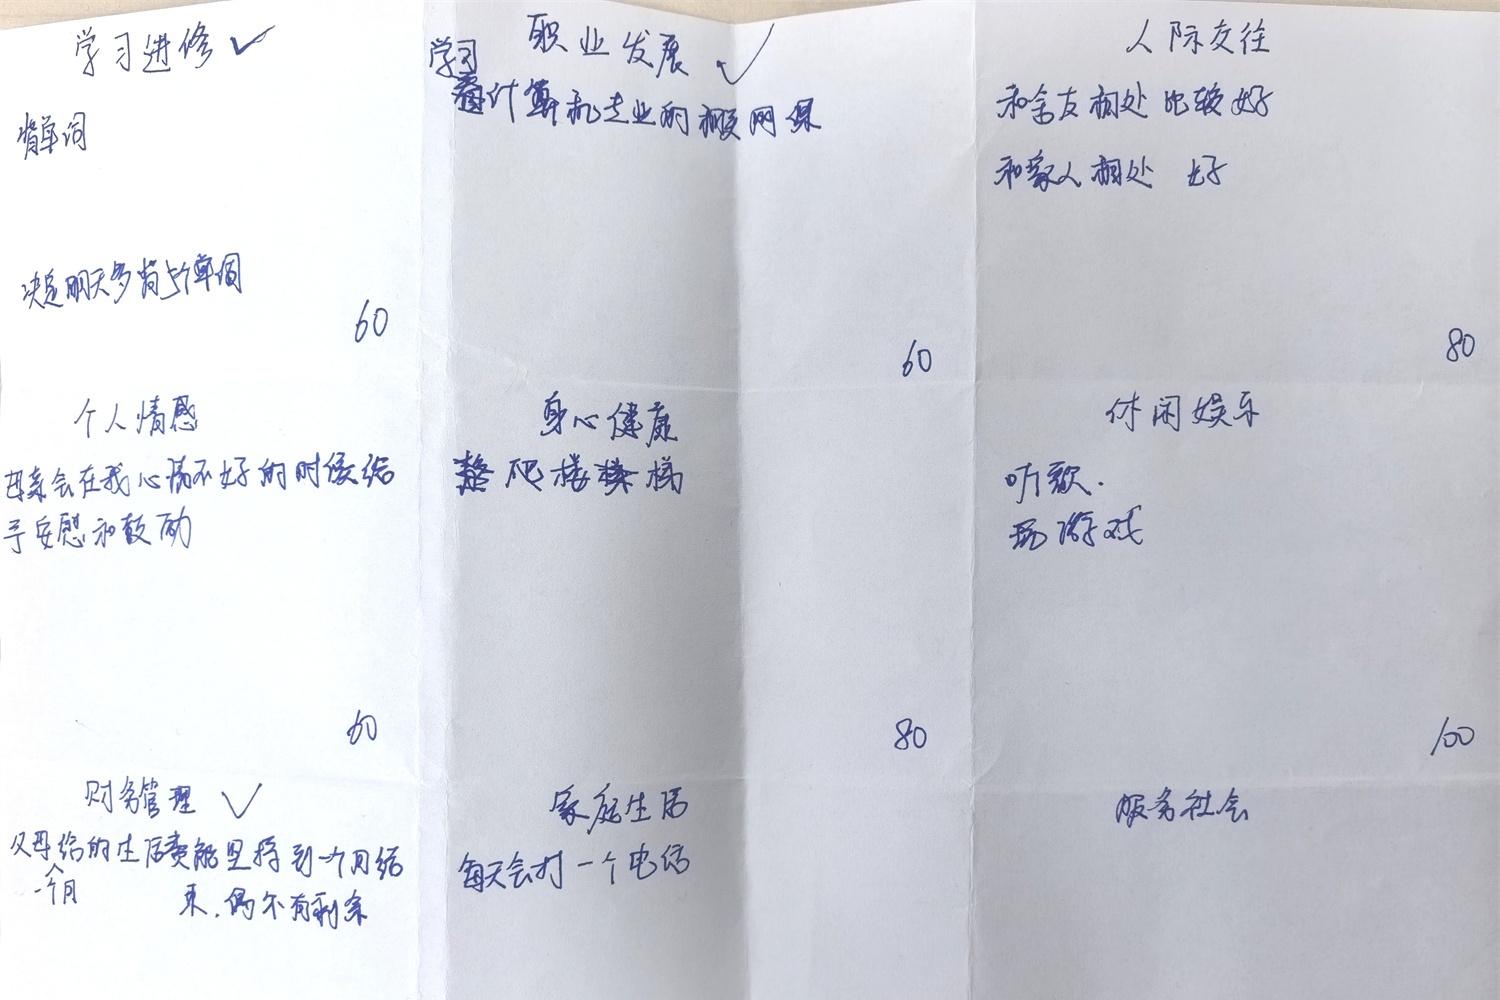 学习进修✓
背单词
决定明天多背5个单词
60
职业发展✓
学习
计算机专业的相关网课
60
人际交往
和舍友相处比较好
和家人相处 好
80
个人情感
母亲会在我心情不好的时候给
予安慰和鼓励
60
身心健康
爬楼梯
80
休闲娱乐
听歌.
玩游戏
100
财务管理✓
父母给的生活费能坚持到一个月结
一个月
束,偶尔有剩余
家庭生活
每天会打一个电话
服务社会